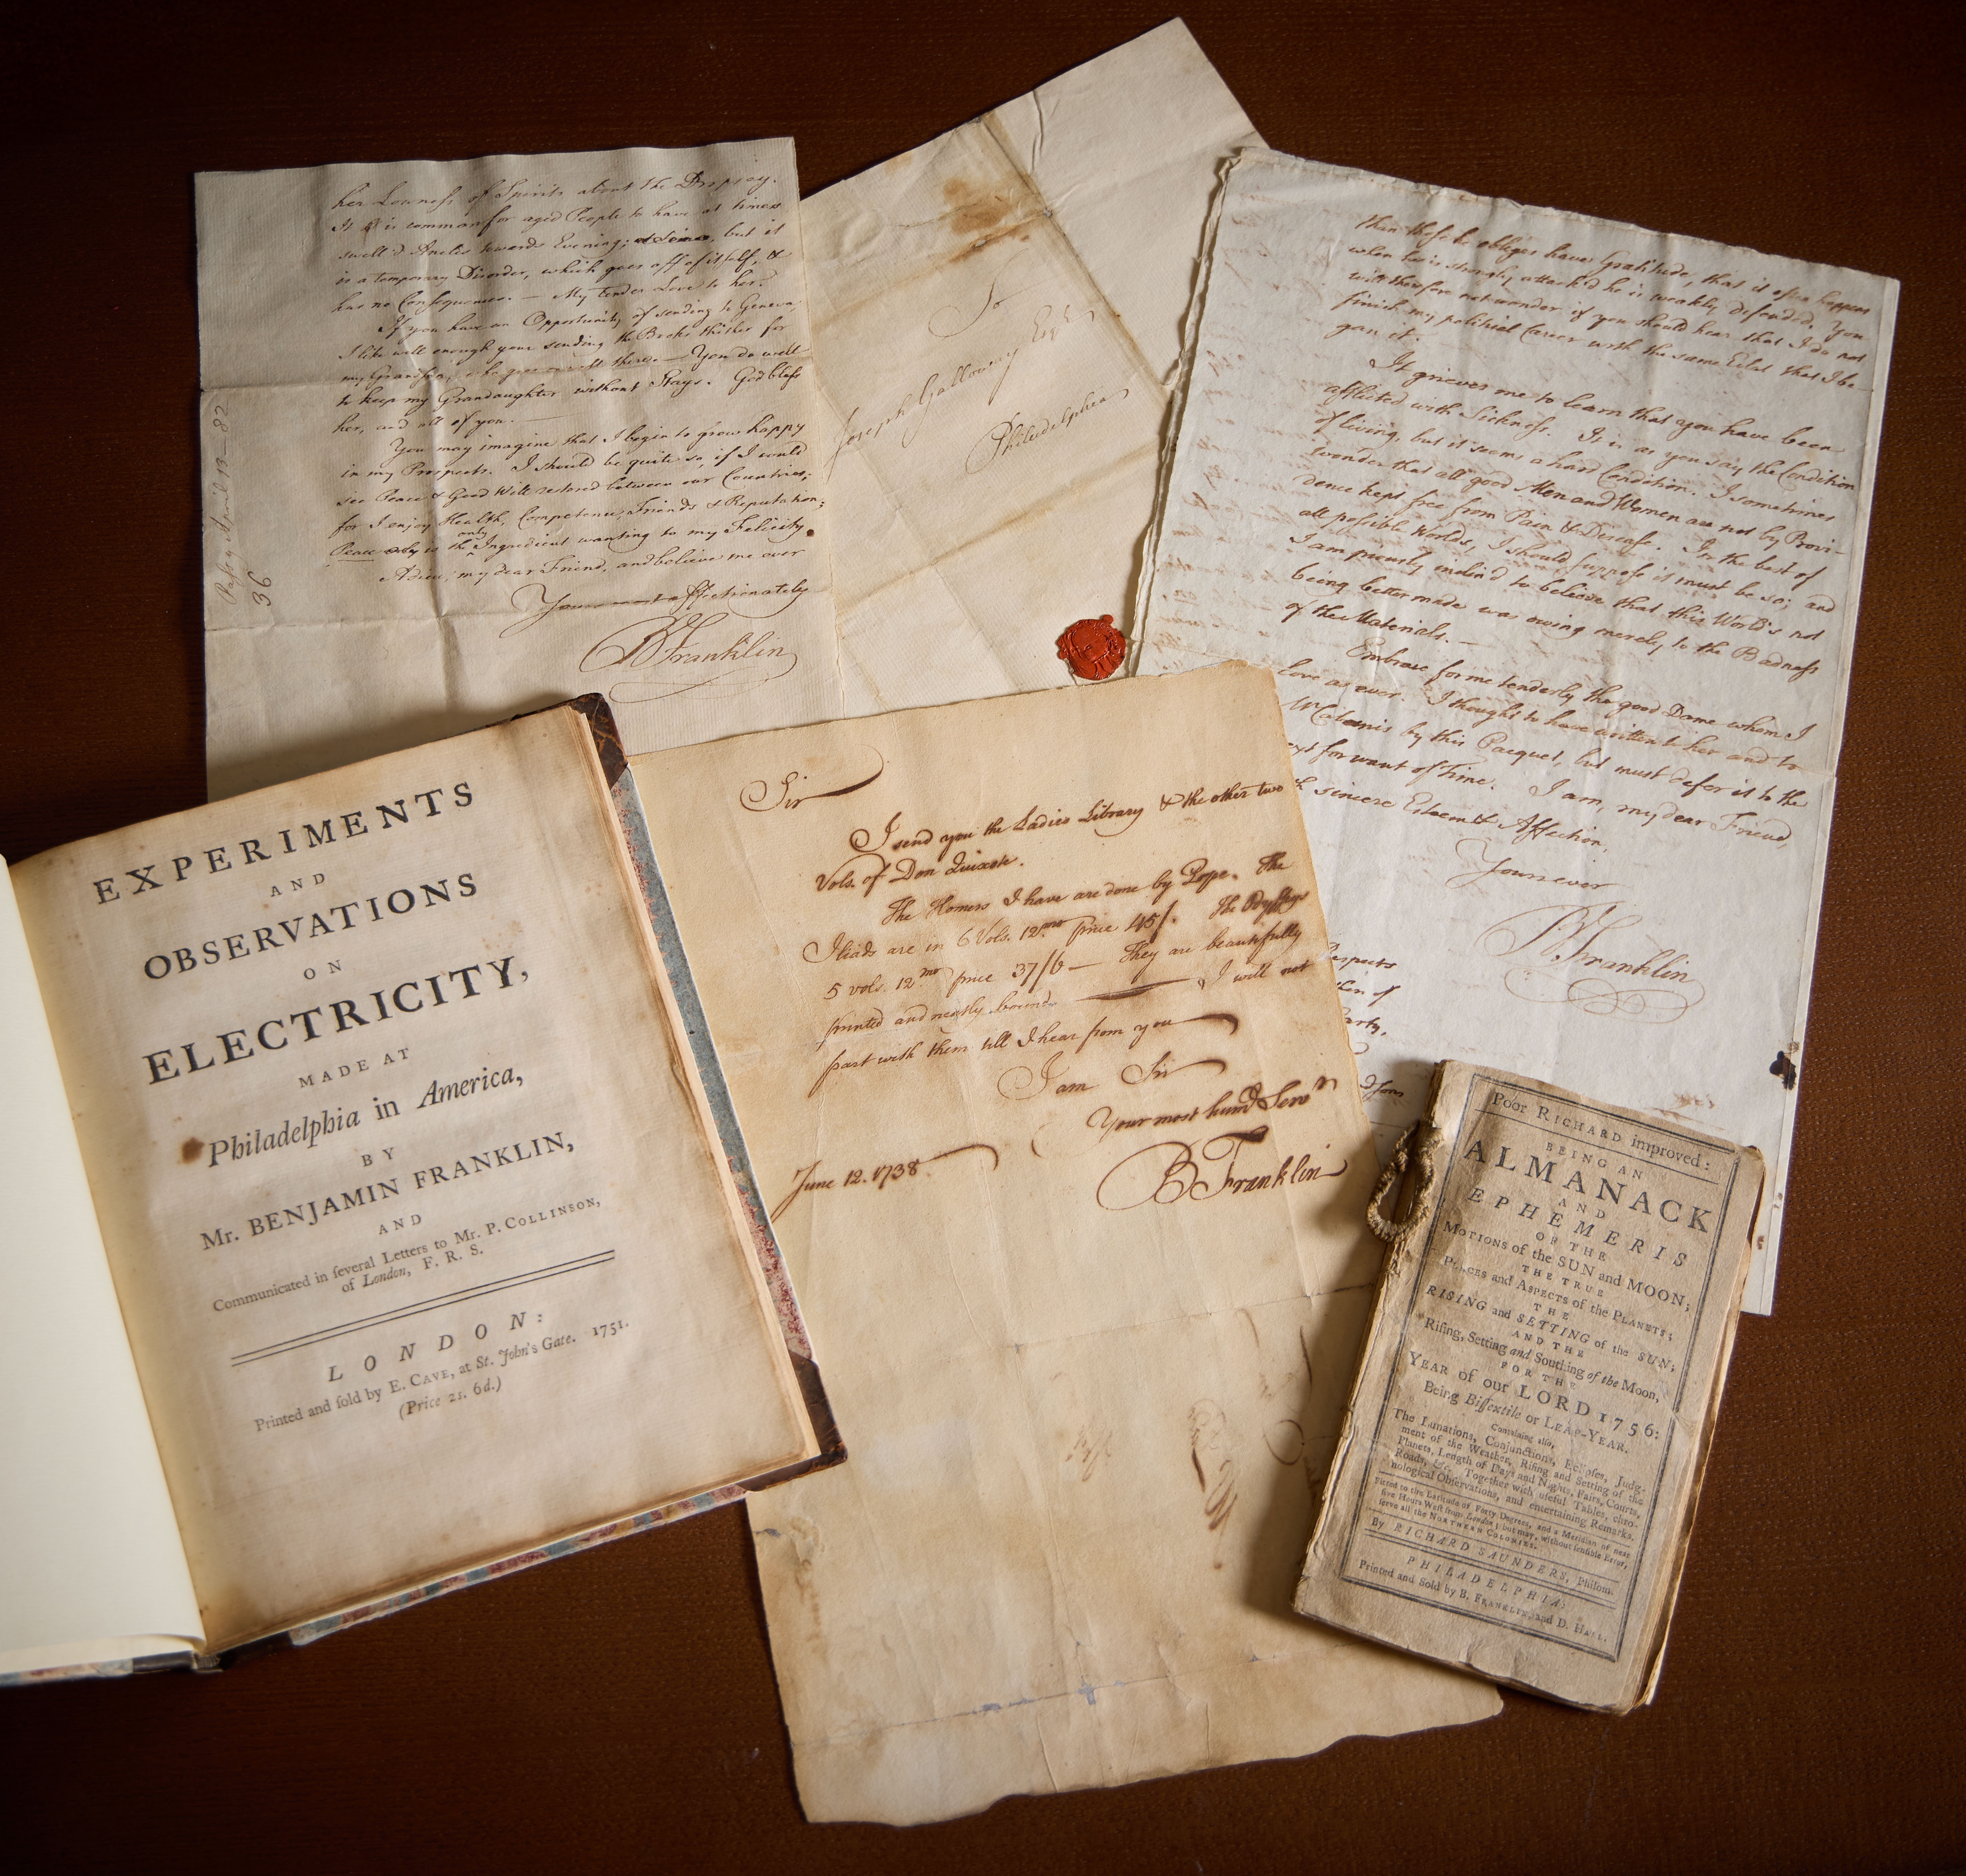 her Lowness of Spirits about the Dropsy.
It is common for aged People to have at times
swell'd Ancles towards Evening; but it
is a temporary Disorder, which goes off of itself, &
has no Consequences. — My tender Love to her.
If you have an Opportunity of sending to Geneva,
I like well enough your sending the Books thither for
my Grandson, who goes on well there. — You do well
to keep my Grandaughter without Stays. God bless
her, and all of you. —
You may imagine that I begin to grow happy
in my Prospects. I should be quite so, if I could
see Peace & Good Will restored between our Countries;
for I enjoy Health, Competence, Friends & Reputation;
Peace is the only Ingredient wanting to my Felicity.
Adieu, my dear Friend, and believe me ever
Yours most affectionately
B Franklin
Passy April 13—82
36
To
Joseph Galloway Esqr
Philadelphia
than those he obliges have Gratitude, that it often happens
when he is strongly attack'd he is weakly defended. You
will therefore not wonder if you should hear that I do not
finish my political Career with the same Eclat that I be-
gan it.
It grieves me to learn that you have been
afflicted with Sickness. It is as you say the Condition
of living, but it seems a hard Condition. I sometimes
wonder that all good Men and Women are not by Provi-
dence kept free from Pain & Disease. In the best of
all possible Worlds, I should suppose it must be so; and
I am piously inclin'd to believe that this World's not
being better made was owing merely to the Badness
of the Materials. —
Embrace for me tenderly the good Dame whom I
love as ever. I thought to have written to her and to
by this Pacquet, but must defer it to the
ext for want of Time. I am, my dear Friend,
sincere Esteem & Affection,
Yours ever
B Franklin
EXPERIMENTS
AND
OBSERVATIONS
ON
ELECTRICITY,
MADE AT
Philadelphia in America,
BY
Mr. BENJAMIN FRANKLIN,
AND
Communicated in ſeveral Letters to Mr. P. COLLINSON,
of London, F. R. S.
LONDON:
Printed and ſold by E. CAVE, at St. John's Gate. 1751.
(Price 2s. 6d.)
Sir
I send you the Ladies Library & the other two
Vols. of Don Quixote.
The Homers I have are done by Pope. The
Iliads are in 6 Vols. 12mo price 45/. The Odysseys
5 vols. 12mo price 37/6 — They are beautifully
printed and neatly bound — I will not
part with them till I hear from you
I am Sir
Your most humb Servt
B Franklin
June 12. 1738.
Poor RICHARD improved:
BEING AN
ALMANACK
AND
EPHEMERIS
OF THE
MOTIONS of the SUN and MOON;
THE TRUE
PLACES and ASPECTS of the PLANETS;
THE
RISING and SETTING of the SUN;
AND THE
Riſing, Setting and Southing of the Moon,
FOR THE
YEAR of our LORD 1756:
Being Biſſextile or LEAP-YEAR.
Containing alſo,
The Lunations, Conjunctions, Eclipſes, Judg-
ment of the Weather, Riſing and Setting of the
Planets, Length of Days and Nights, Fairs, Courts,
Roads, &c. Together with uſeful Tables, chro-
nological Obſervations, and entertaining Remarks.
Fitted to the Latitude of Forty Degrees, and a Meridian of near
five Hours Weſt from London; but may, without ſenſible Error,
ſerve all the NORTHERN COLONIES.
By RICHARD SAUNDERS, Philom.
PHILADELPHIA:
Printed and Sold by B. FRANKLIN, and D. HALL.